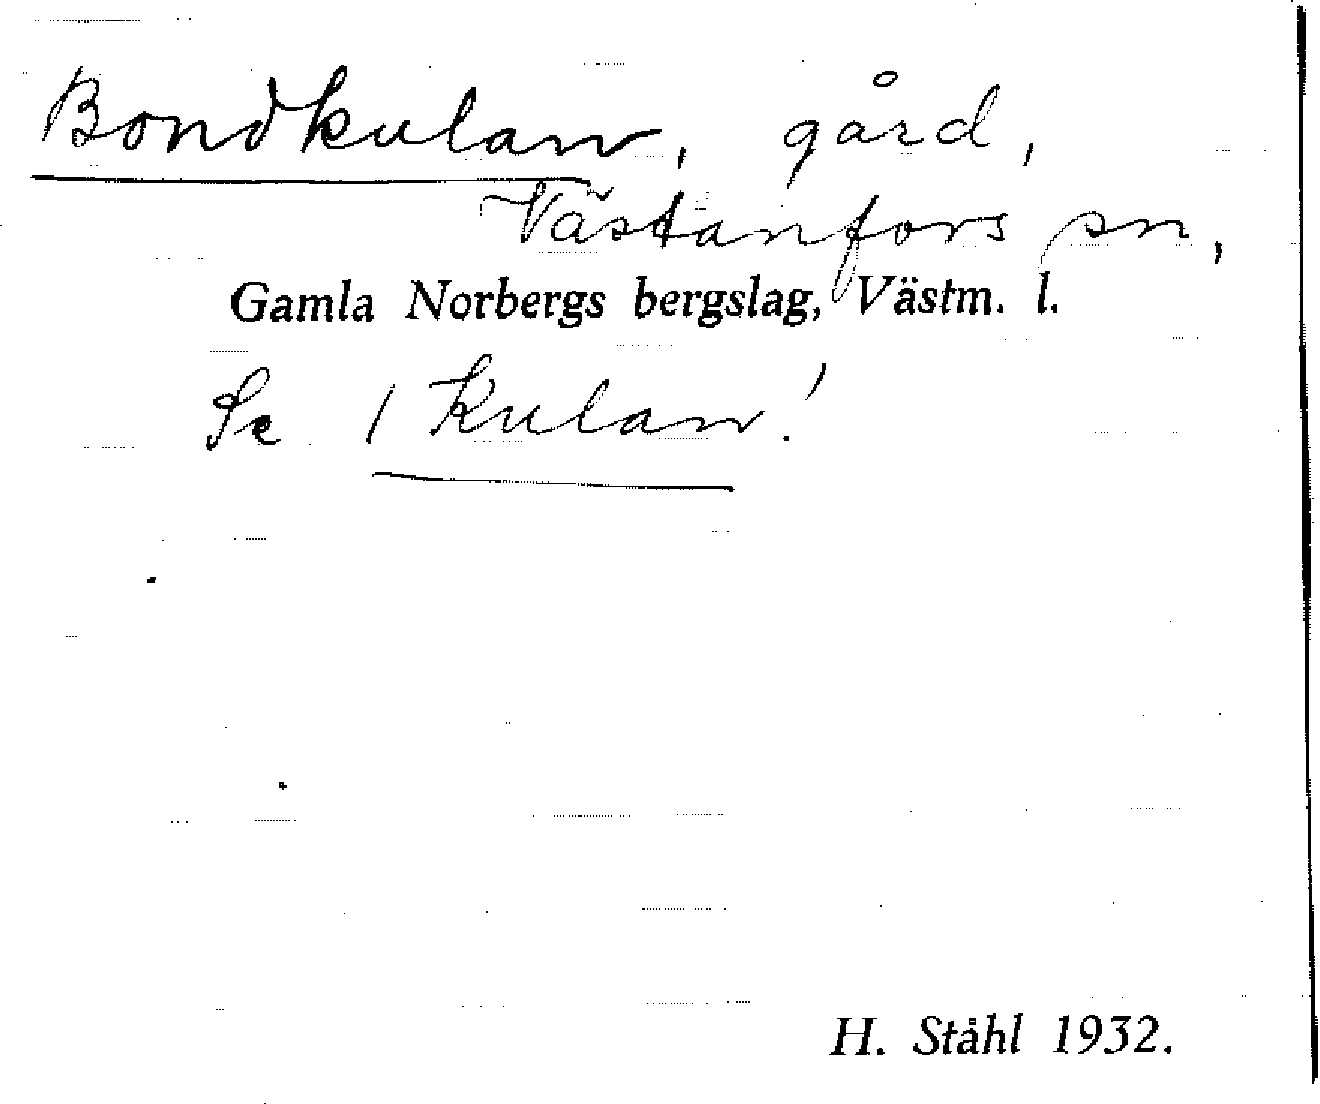 Bondkulan, gård,
Västanfors sn,
Gamla Norbergs bergslag, Västm. l.
Se 1 Kulan!
H. Ståhl 1932.